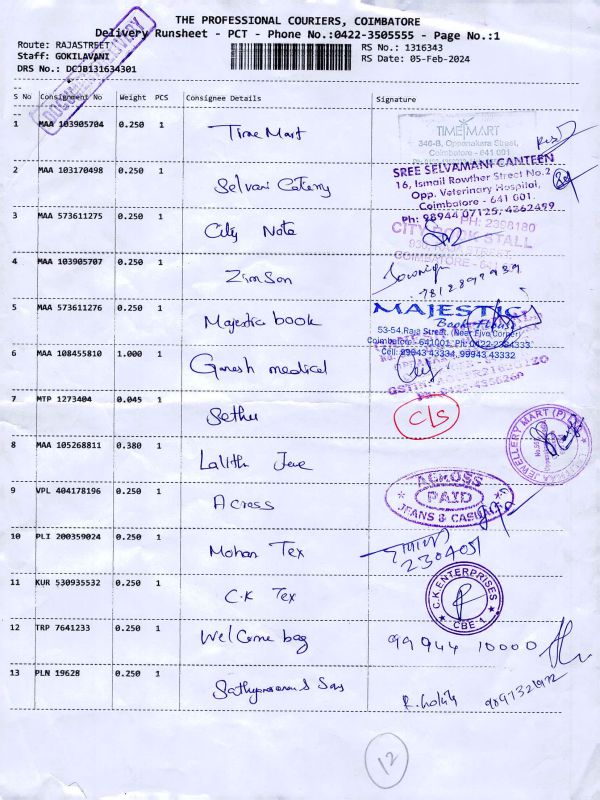 THE PROFESSIONAL COURIERS, COIMBATORE
Delivery Runsheet - PCT - Phone No.:0422-3505555 - Page No.:1
Route: RAJASTREET
RS No.: 1316343
Staff: GOKILAVANI
RS Date: 05-Feb-2024
DRS No.: DCJB131634301
S No Consignment No Weight PCS Consignee Details Signature
1 MAA 103905704 0.250 1 Time Mart
TIME MART
346-B, Oppanakara Street,
Coimbatore - 641 001
2 MAA 103170498 0.250 1 Selvani Caterry
SREE SELVAMANI CANTEEN
16, Ismail Rowther Street No.2
Opp. Veterinary Hospital,
Coimbatore - 641 001.
Ph: 98944 07125, 4362499
3 MAA 573611275 0.250 1 City Note
PH: 2398180
CITY BOOK STALL
COIMBATORE - 641
4 MAA 103905707 0.250 1 Zimson
5 MAA 573611276 0.250 1 Majestic book
MAJESTIC
Book House
53-54, Raja Street, (Near Five Corner)
Coimbatore - 641001. Ph: 0422-2384333
Cell: 99943 43334, 99943 43332
6 MAA 108455810 1.000 1 Ganesh medical
7 MTP 1273404 0.045 1 Sethu
C/S
8 MAA 105268811 0.380 1 Lalith Jewe
JEWELLERY MART (P)
9 VPL 404178196 0.250 1 Across
ACROSS
PAID
JEANS & CASUALS
10 PLI 200359024 0.250 1 Mohan Tex
2304051
11 KUR 530935532 0.250 1 C.K Tex
C.K ENTERPRISES
CBE-1
12 TRP 7641233 0.250 1 Welcome bag 99944 10000
13 PLN 19628 0.250 1
12